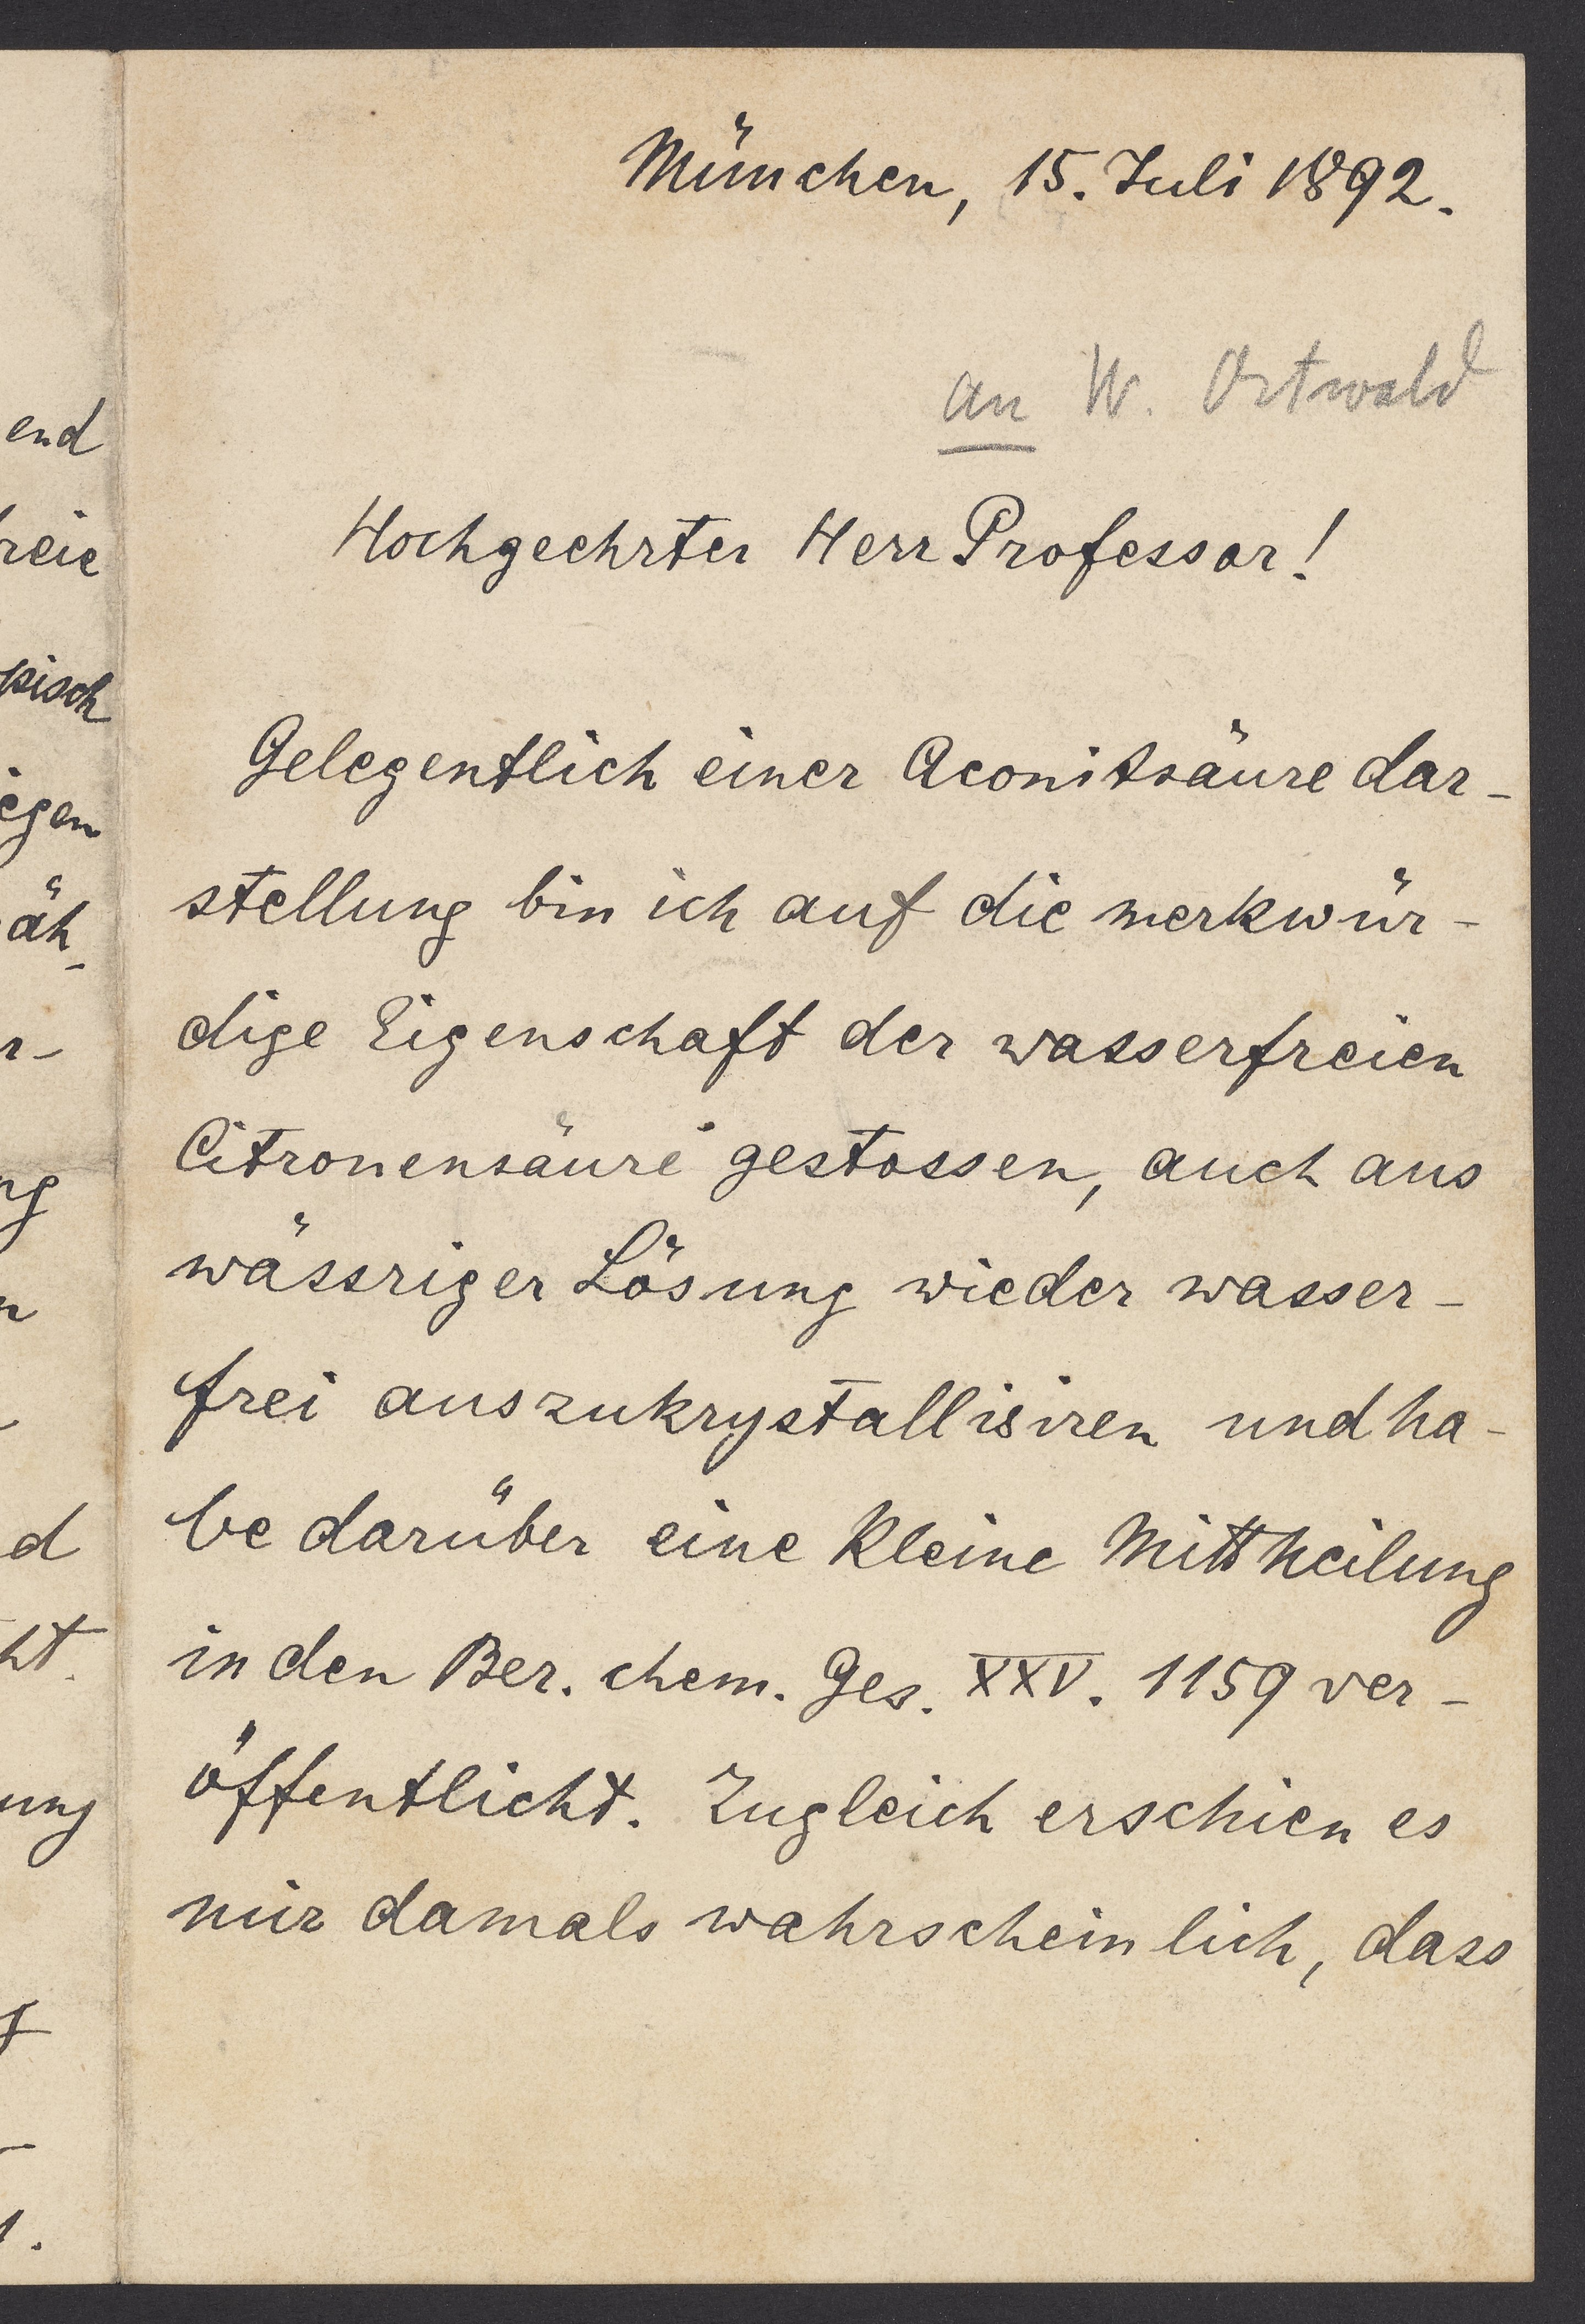 end
reie
pisch
egen
äh-
r-
ng
n
d
ht.
ung
München, 15. Juli 1892.
an W. Ostwald
Hochgeehrter Herr Professor!
Gelegentlich einer Aconitsäure dar-
stellung bin ich auf die merkwür-
dige Eigenschaft der wasserfreien
Citronensäure gestossen, auch aus
wässriger Lösung wieder wasser-
frei auszukrystallisiren und ha-
be darüber eine kleine Mittheilung
in den Ber. chem. Ges. XXV. 1159 ver-
öffentlicht. Zugleich erschien es
mir damals wahrscheinlich, dass